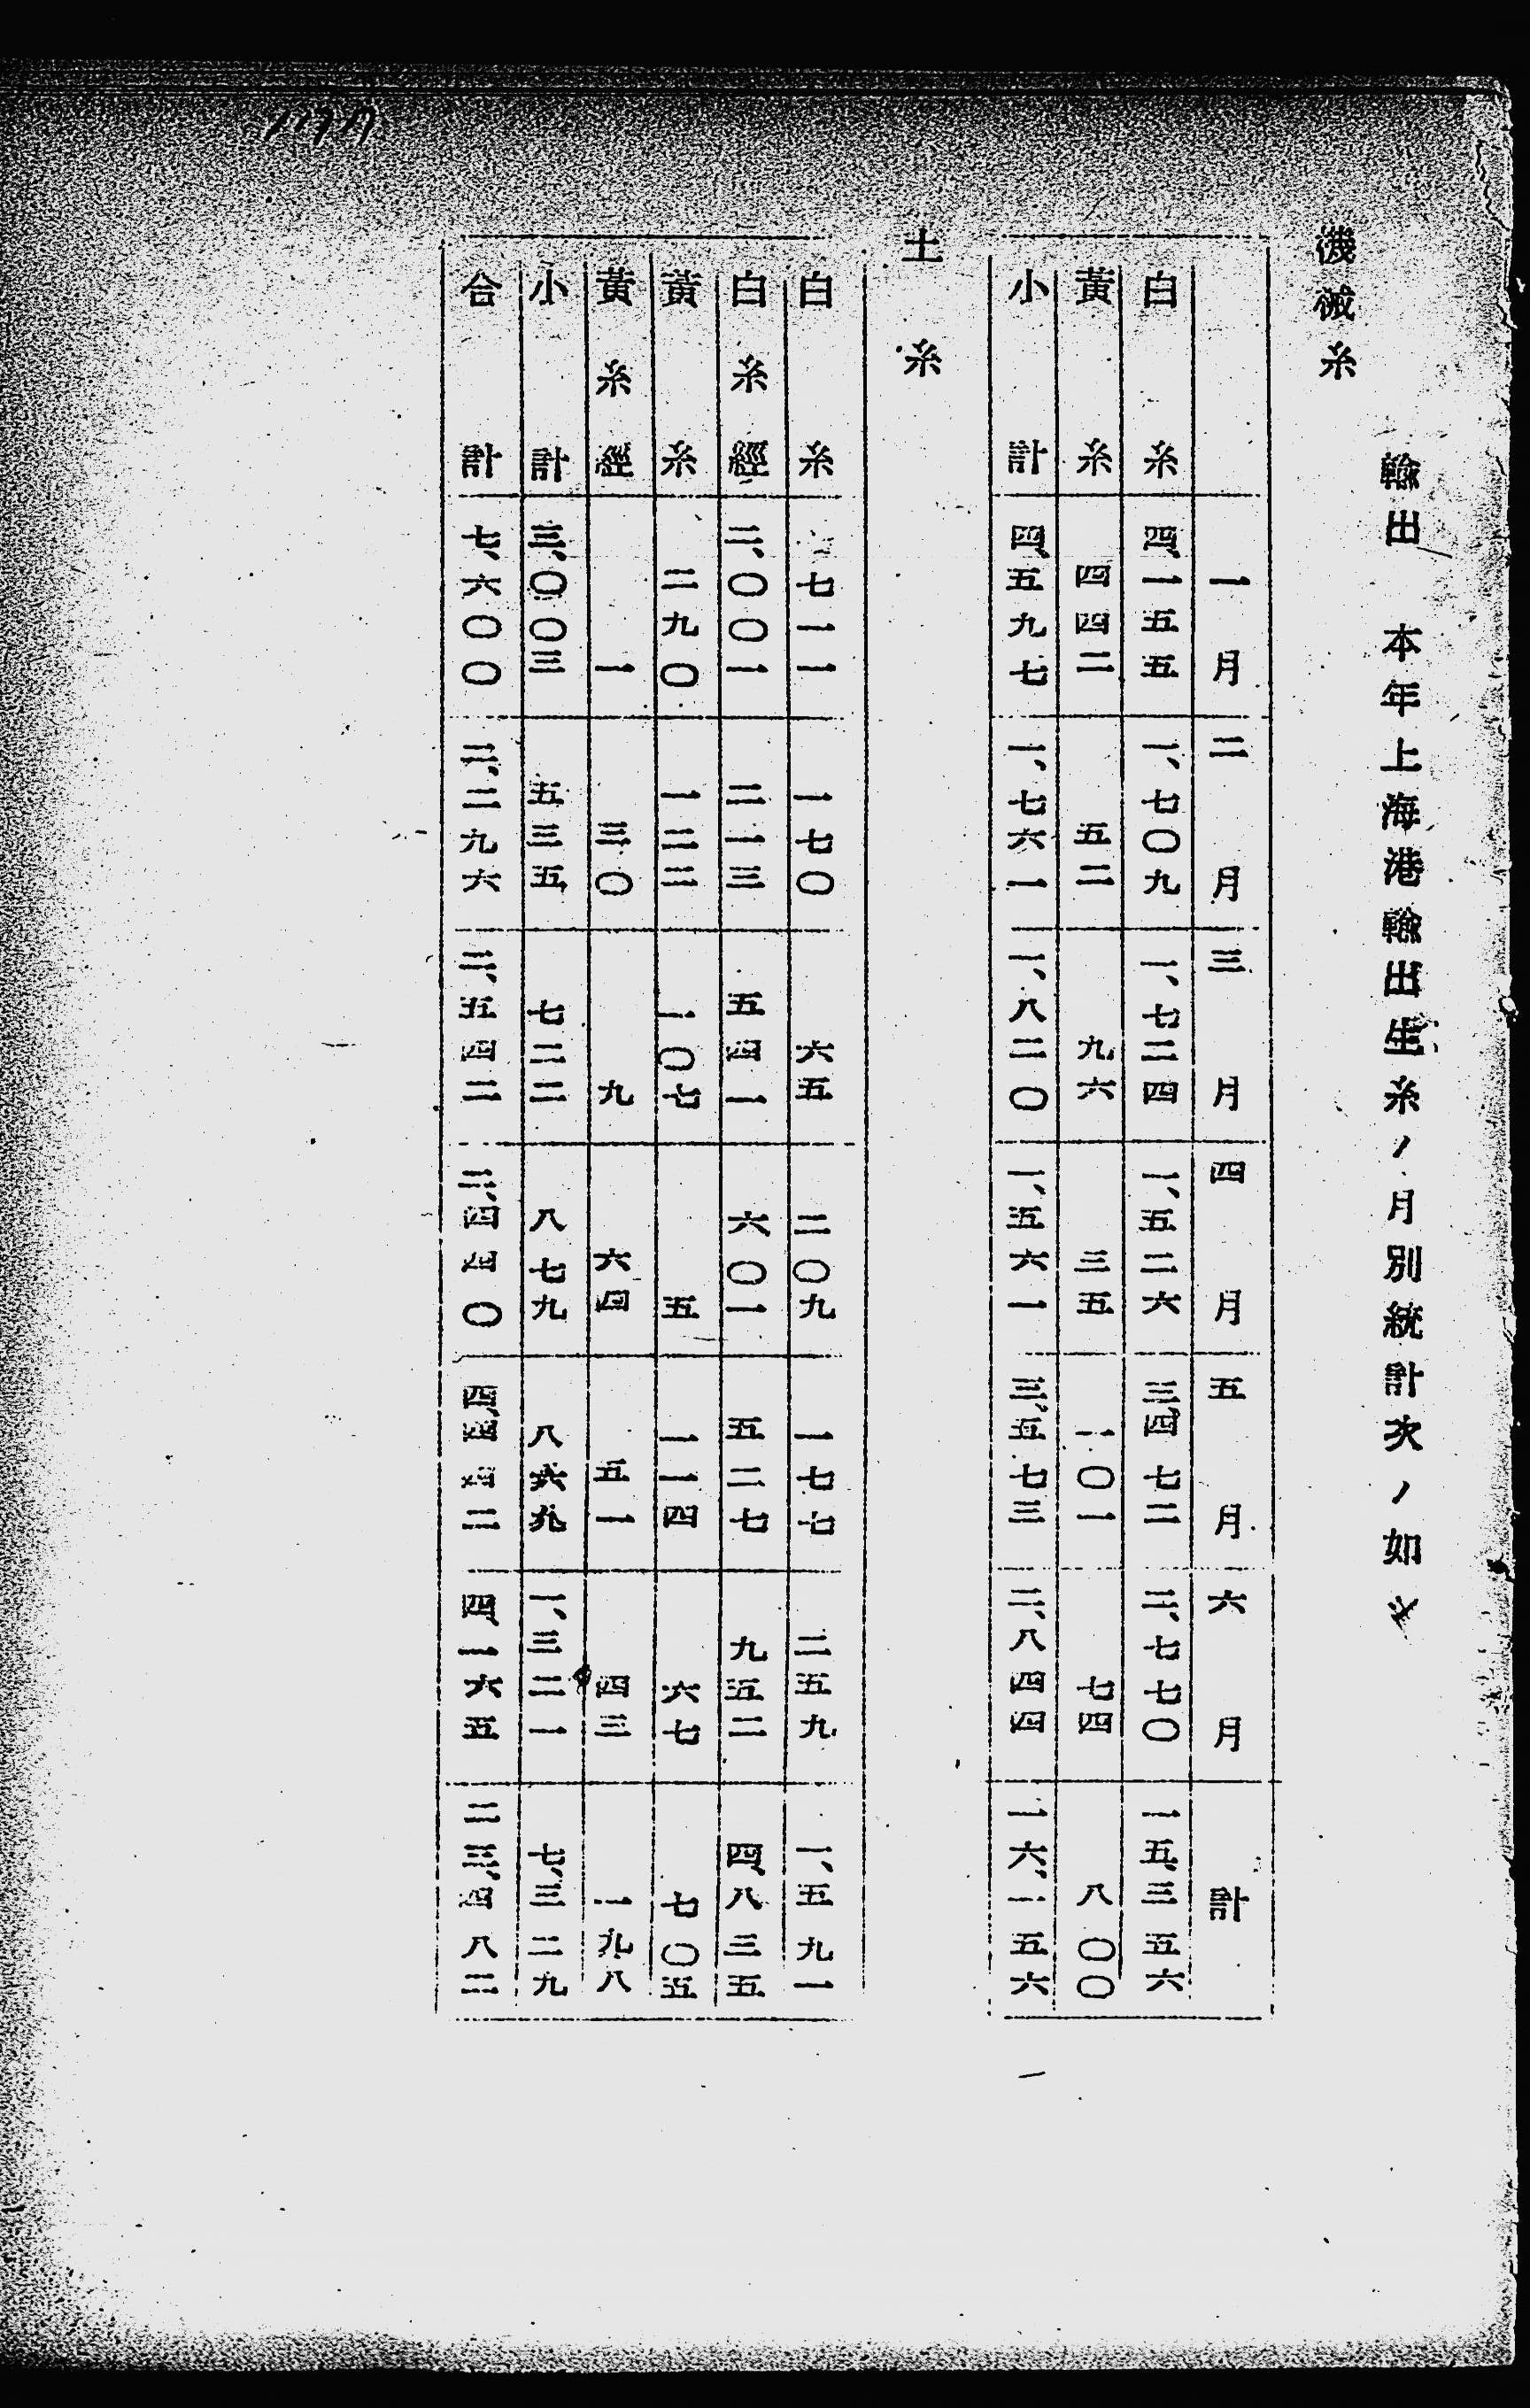 輸出　本年上海港輸出生糸ノ月別統計次ノ如シ
機械糸
一月　二月　三月　四月　五月　六月　計
白糸　四、一五五　一、七〇九　一、七二四　一、五二六　三、四七二　二、七七〇　一五、三五六
黃糸　四四二　五二　九六　三五　一〇一　七四　八〇〇
小計　四、五九七　一、七六一　一、八二〇　一、五六一　三、五七三　二、八四四　一六、一五六
土糸
白糸　七一一　一七〇　六五　二〇九　一七七　二五九　一、五九一
白糸經　二、〇〇一　二一三　五四一　六〇一　五二七　九五二　四、八三五
黃糸　二九〇　一二二　一〇七　五　一一四　六七　七〇五
黃糸經　一　三〇　九　六四　五一　四三　一九八
小計　三、〇〇三　五三五　七二二　八七九　八六九　一、三二一　七、三二九
合計　七、六〇〇　二、二九六　二、五四二　二、四四〇　四、四四二　四、一六五　二三、四八二